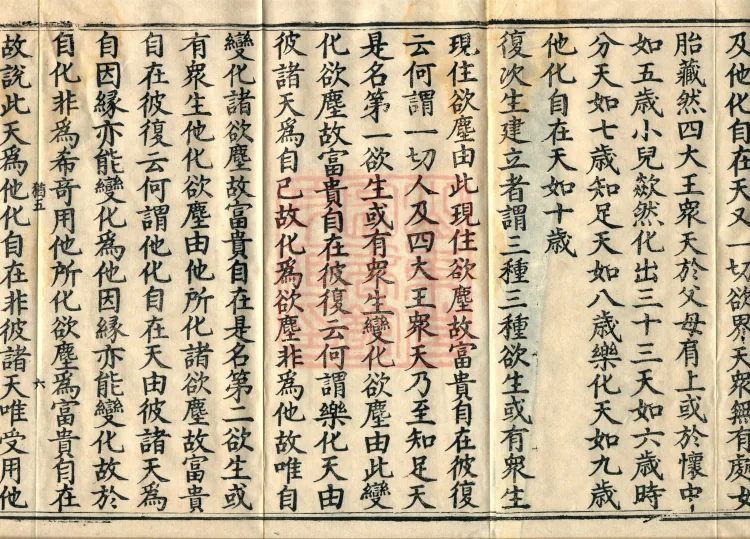 及他化自在天又一切欲界天眾無有處女
胎藏然四大王眾天於父母肩上或於懷中
如五歲小兒欻然化出三十三天如六歲時
分天如七歲知足天如八歲樂化天如九歲
他化自在天如十歲
復次生建立者謂三種三種欲生或有眾生
現住欲塵由此現住欲塵故富貴自在彼復
云何謂一切人及四大王眾天乃至知足天
是名第一欲生或有眾生變化欲塵由此變
化欲塵故富貴自在彼復云何謂樂化天由
彼諸天為自己故化為欲塵非為他故唯自
變化諸欲塵故富貴自在是名第二欲生或
有眾生他化欲塵由他所化諸欲塵故富貴
自在彼復云何謂他化自在天由彼諸天為
自因緣亦能變化為他因緣亦能變化故於
自化非為希奇用他所化欲塵為富貴自在
故說此天為他化自在非彼諸天唯受用他